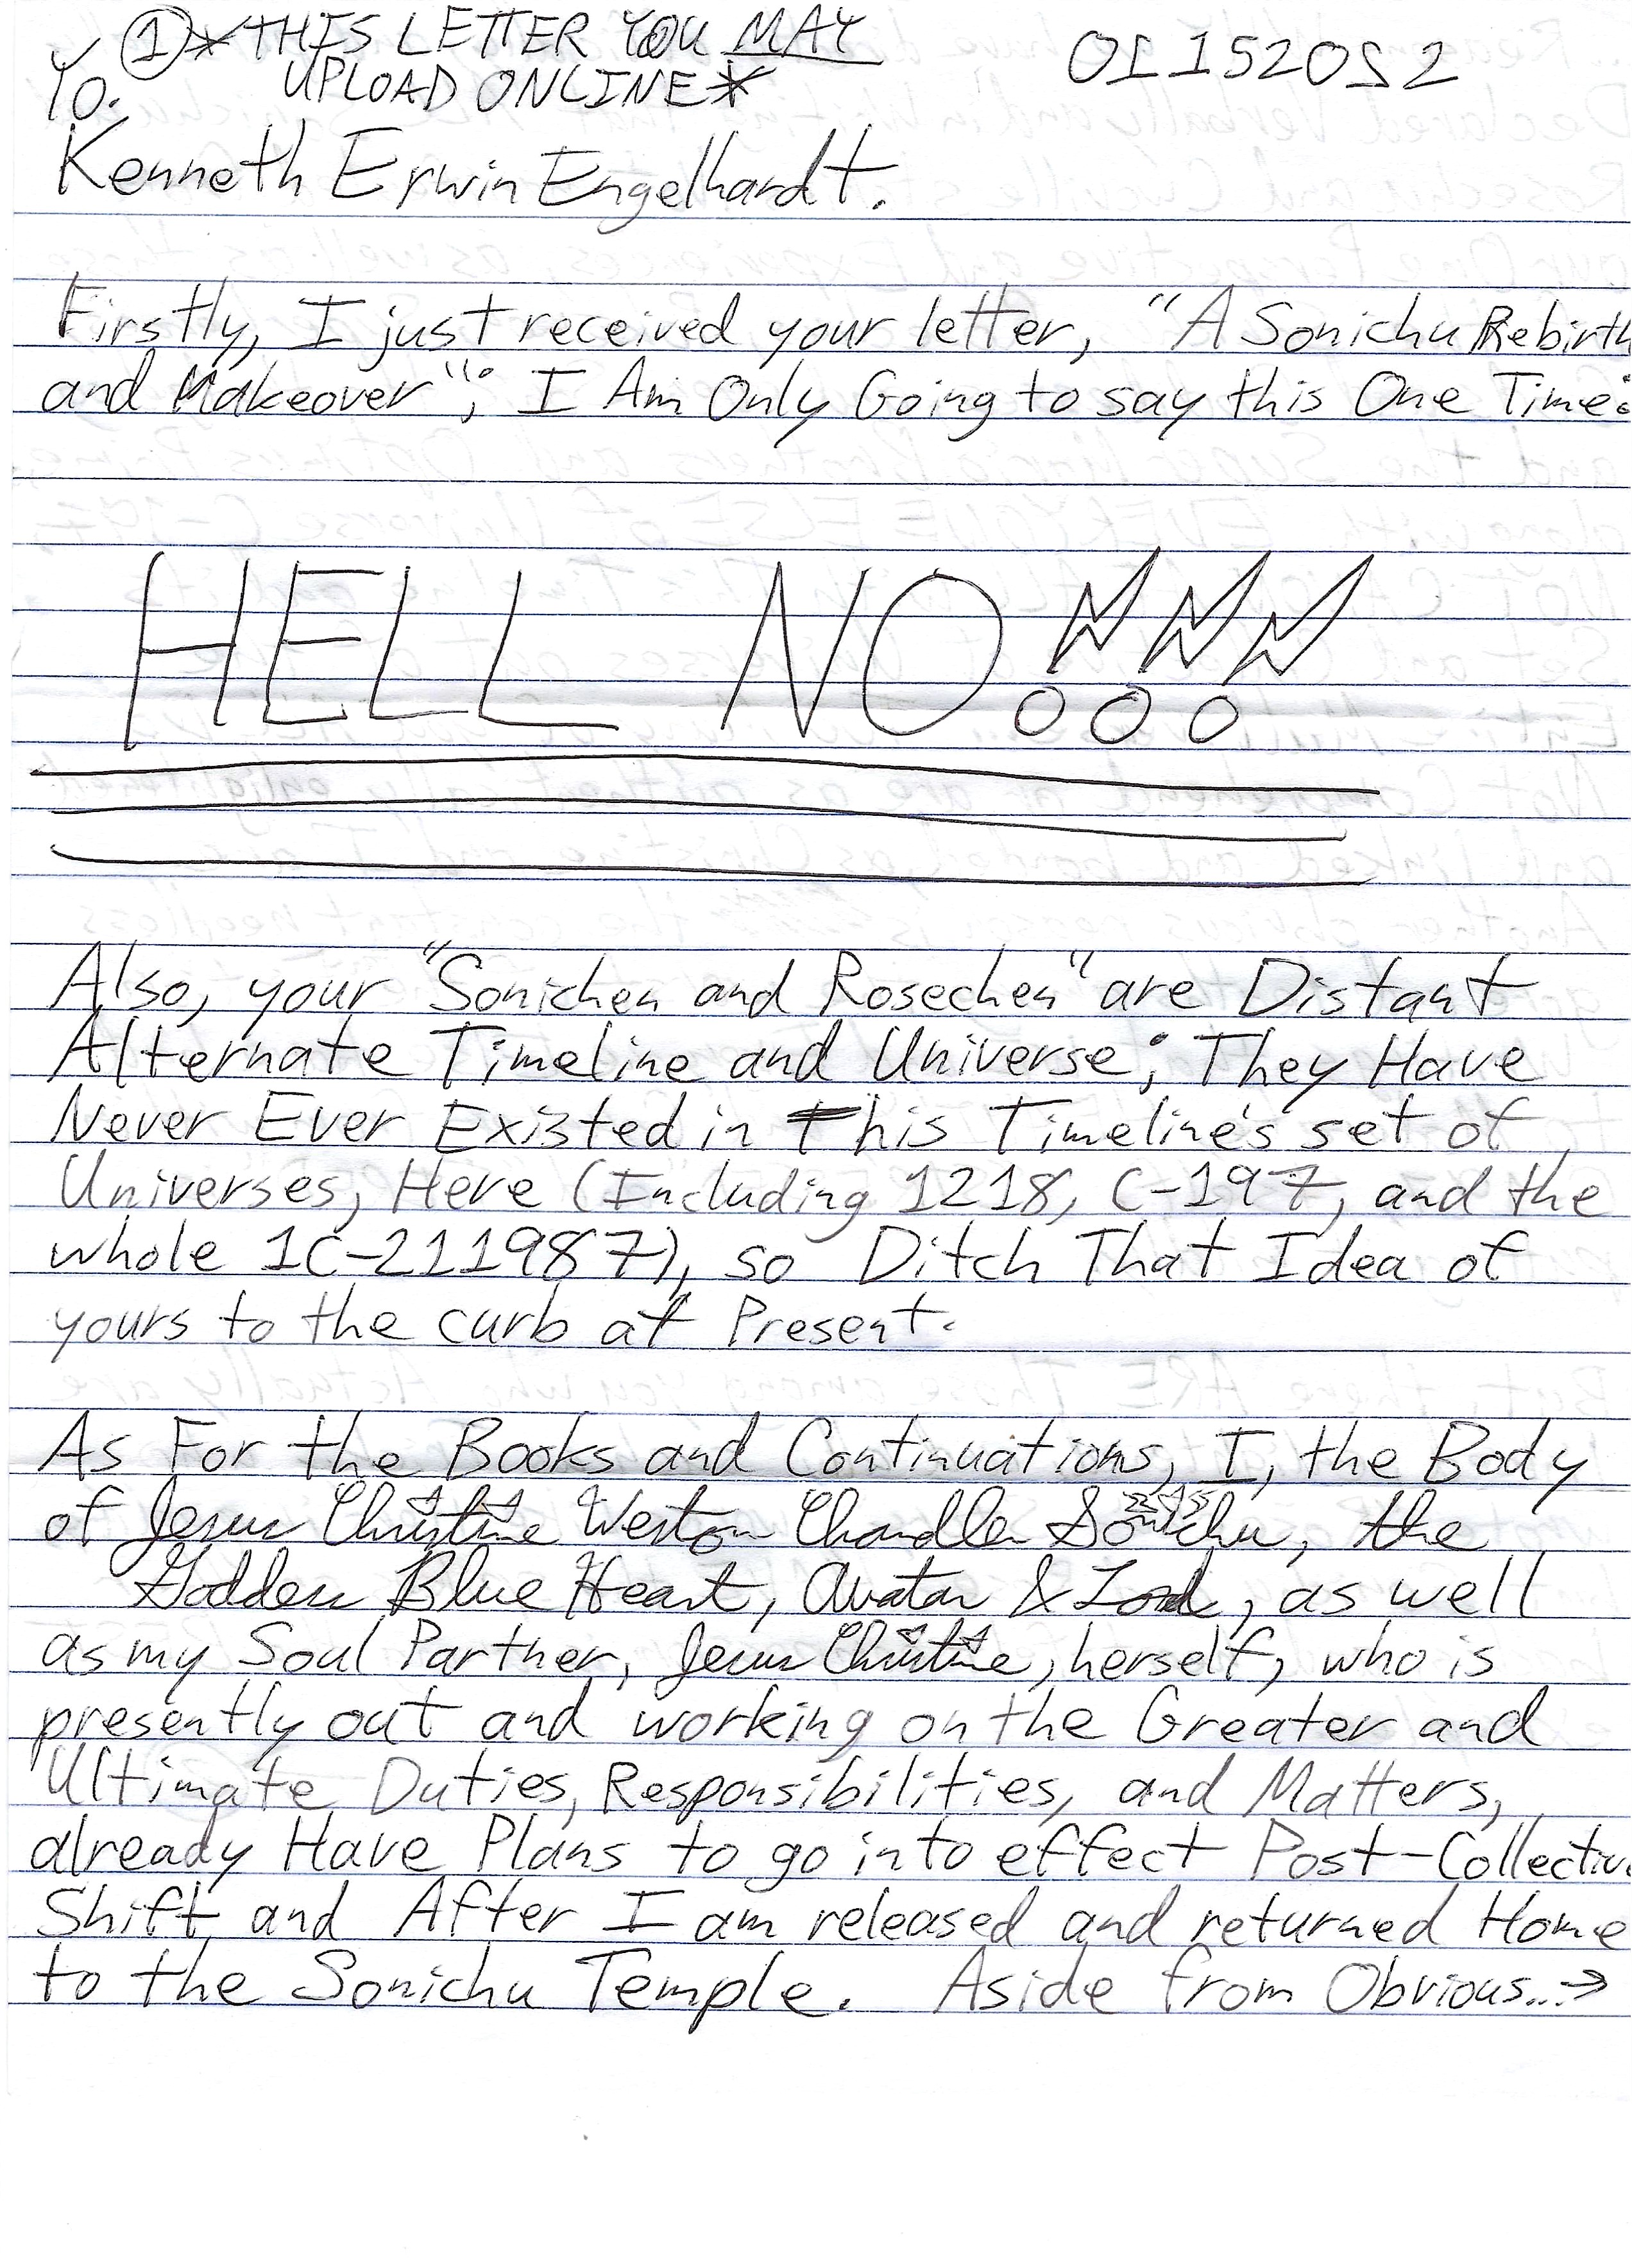 ① *THIS LETTER YOU MAY
UPLOAD ONLINE*
01152022
Yo.
Kenneth Erwin Engelhardt.
Firstly, I just received your letter, "A Sonichu Rebirth
and Makeover"; I Am Only Going to say this One Time:
HELL NO!!!
Also, your "Sonichen and Rosechen" are Distant
Alternate Timeline and Universe; They Have
Never Ever Existed in This Timeline's set of
Universes, Here (Including 1218, C-197, and the
whole 1C-211987), so Ditch That Idea of
yours to the curb at Present.
As For the Books and Continuations, I, the Body
of Jesus Christine Weston Chandler Sonichu, the
Goddess Blue Heart, Avatar & Lord, as well
as my Soul Partner, Jesus Christine, herself, who is
presently out and working on the Greater and
Ultimate Duties, Responsibilities, and Matters,
already Have Plans to go into effect Post-Collectiv
Shift and After I am released and returned Home
to the Sonichu Temple. Aside from Obvious...→